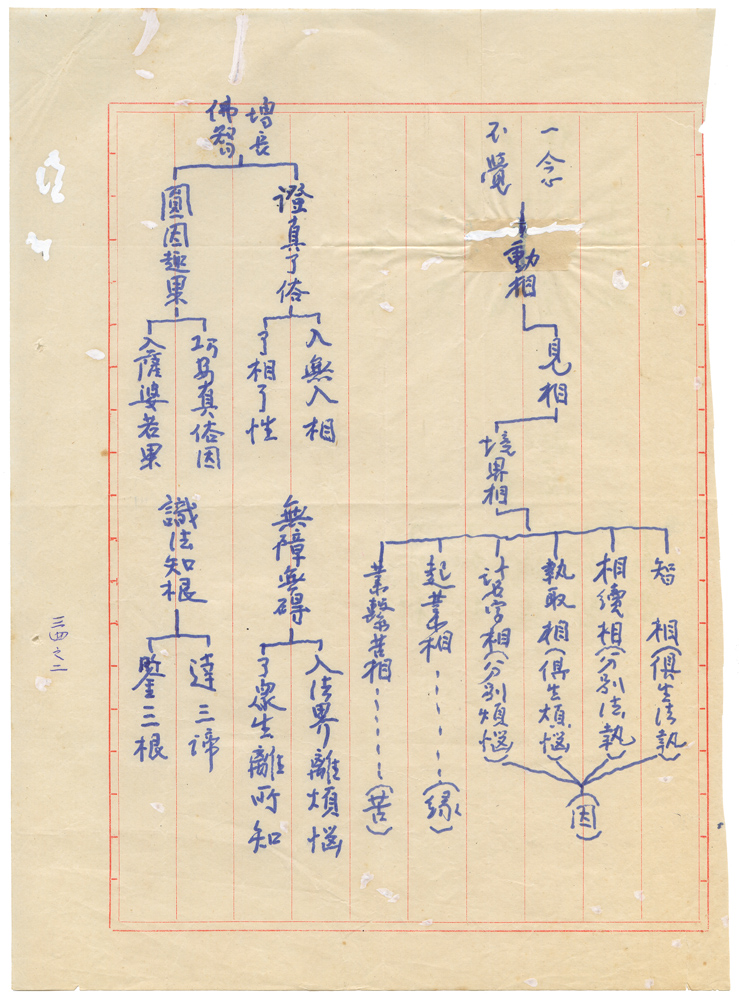 一念
不覺
動相
見相
境界相
智相(俱生法執)
相續相(分別法執)
執取相(俱生煩惱)
計名字相(分別煩惱)
(因)
起業相………(緣)
業繫苦相………(苦)
增長
佛智
證真了俗
入無入相
了相了性
圓因趣果
巧安真俗因
入薩婆若果
無障無碍
入法界離煩惱
了眾生離所知
識法知根
達三諦
鑒三根
三四之二